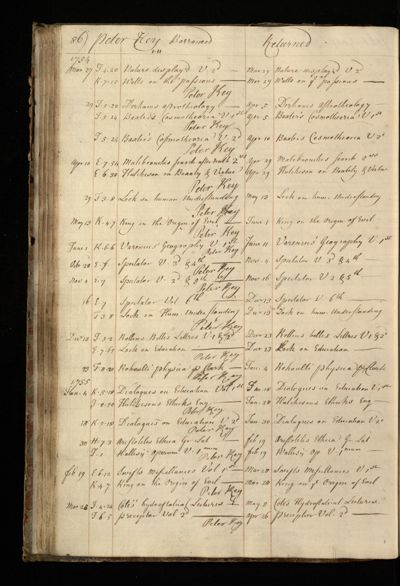 86) Peter Key Borrowed Returned
1754
Mar 27 F.4.20 Nature display'd V 2d Mar 27 Nature display'd V 2d
K.7.10 Watts on the passions Mar 29 Watts on ye passions
Peter Key
29 Derhams astrotheology Apr 5 Derhams astrotheology
F.5.24 Baxter's Cosmotheoria V 1st Apr 5 Baxter's Cosmotheoria V 1st
Peter Key
F.5.24 Baxter's Cosmotheoria V 2d Apr 10 Baxter's Cosmotheoria V 2d
Peter Key
Apr 10 E.7.24 Malebranches search after truth 2d Apr 29 Malebranches search
E.6.30 Hutcheson on Beauty & Virtue Hutcheson on Beauty & Virtue
Peter Key
F.3.8 Lock on human Understanding May 13 Lock on hum. Understanding
Peter Key
May 13 K.4.7 King on the Origin of Evil June 1 King on the Origin of Evil
Peter Key
June 1 Varenius' Geography V 1st June 11 Varenius' Geography V 1st
Peter Key
Oct 20 E.7 Spectator V & 4th Nov 4 Spectator V & 4th
Peter Key
Nov 4 E.7 Spectator V 2d & 5th Nov 16 Spectator V 2 & 5th
Peter Key
16 E.7 Spectator Vol 6th Decr 13 Spectator V 6th
F.3.8 Lock on Hum. Understanding Lock on hum. Understanding
Peter Key
Decr 13 Rollins Belles Lettres V 1 & 2d Decr 23 Rollins belles Lettres V 1 & 2d
Lock on Education Decr 23 Lock on Education
Peter Key
23 F.8.20 Rohaulti physica Jan 4 Rohaulti physica
Peter Key
1755
Jan 4 Dialogues on Education Vol 1st Jan 18 Dialogues on Education V 1st
Hutchesons Ethicks Eng. Jan 20 Hutchesons Ethicks Eng
Peter Key
18 K.5.10 Dialogues on Education V 2d Jan 30 Dialogues on Education V 2d
Peter Key
30 H.7.3 Aristotles Ethica Gr. Lat Feb 19 Aristotles Ethica Gr. Lat
Wallisij operum V 1 Feb 19 Wallisij Op V
Peter Key
Feb 19 E.6.12 Swifts Miscellanies Vol 1st Mar 28 Swifts Miscellanies V 1st
K.4.7 King on the Origin of Evil Mar 28 King on ye Origin of Evil
Peter Key
Mar 28 Cotes' hydrostatical Lectures May 2 Cotes Hydrostatical Lectures
F.6.5 Preceptor Vol 2d Apr 26 Preceptor Vol 2d
Peter Key